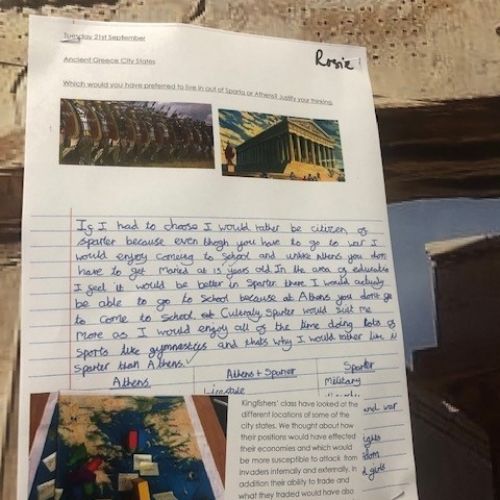 Tuesday 21st September
Rosie
Ancient Greece City States
Which would you have preferred to live in out of Sparta or Athens? Justify your thinking.
If I had to choose I would rather be citizen of
sparter because even thogh you have to go to war I
would enjoy coming to School and unlike Athens you dont
have to get maried at 15 years old. In the area of educatio
I feel it would be better in Sparter there I would actualy
be able to go to School because at Athens you dont go
to come to School at Culturaly Sparter would suit me
more as I would enjoy all of the time doing lots of
Sports like gymnastics and thats why I would rather live i
Sparter than Athens.
Athens Athens + Sparter Sparter
Military
and war
girls
Kingfishers' class have looked at the
different locations of some of the
city states. We thought about how
their positions would have effected
their economies and which would
be more susceptible to attack from
invaders internally and externally. In
addition their ability to trade and
what they traded would have also